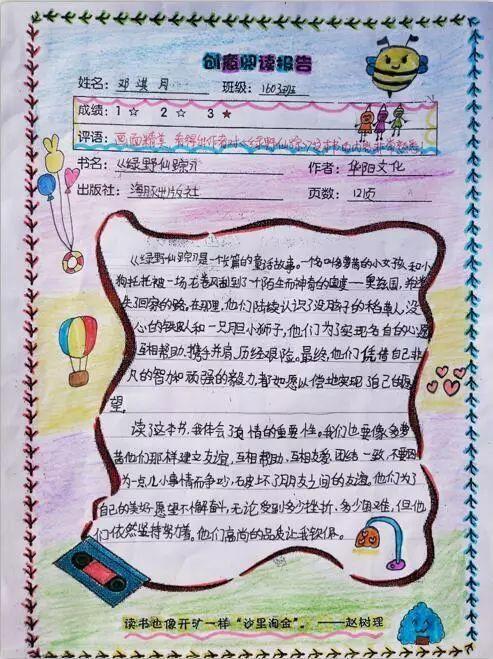 创意阅读报告
姓名：邓淇月 班级：1603班
成绩：1☆ 2☆ 3★
评语：画面精美，看得出作者对《绿野仙踪》这本书的内容非常熟悉！
书名：《绿野仙踪》 作者：华阳文化
出版社：海豚出版社 页数：121页
《绿野仙踪》是一长篇的童话故事。一个叫多萝茜的小女孩和小
狗托托被一场龙卷风刮到了个陌生而神奇的国度——奥兹国，并迷
失了回家的路。在那里，他们陆续认识了没脑子的稻草人、没
心的铁皮人和一只胆小狮子，他们为了实现各自的心愿
互相帮助，携手并肩，历经艰险。最终，他们凭借自己非
凡的智力和顽强的毅力，都如愿以偿地实现了自己的愿
望。
读了这本书，我体会了友情的重要性。我们也要像多萝
茜他们那样建立友谊，互相帮助，互相友爱，团结一致，不要因
为一点儿小事情而争吵，破坏了朋友之间的友谊。他们为了
自己的美好愿望不懈奋斗，无论受到多少挫折、多少困难，但他
们依然坚持努力着。他们高尚的品质让我钦佩。
读书也像开矿一样“沙里淘金”。——赵树理